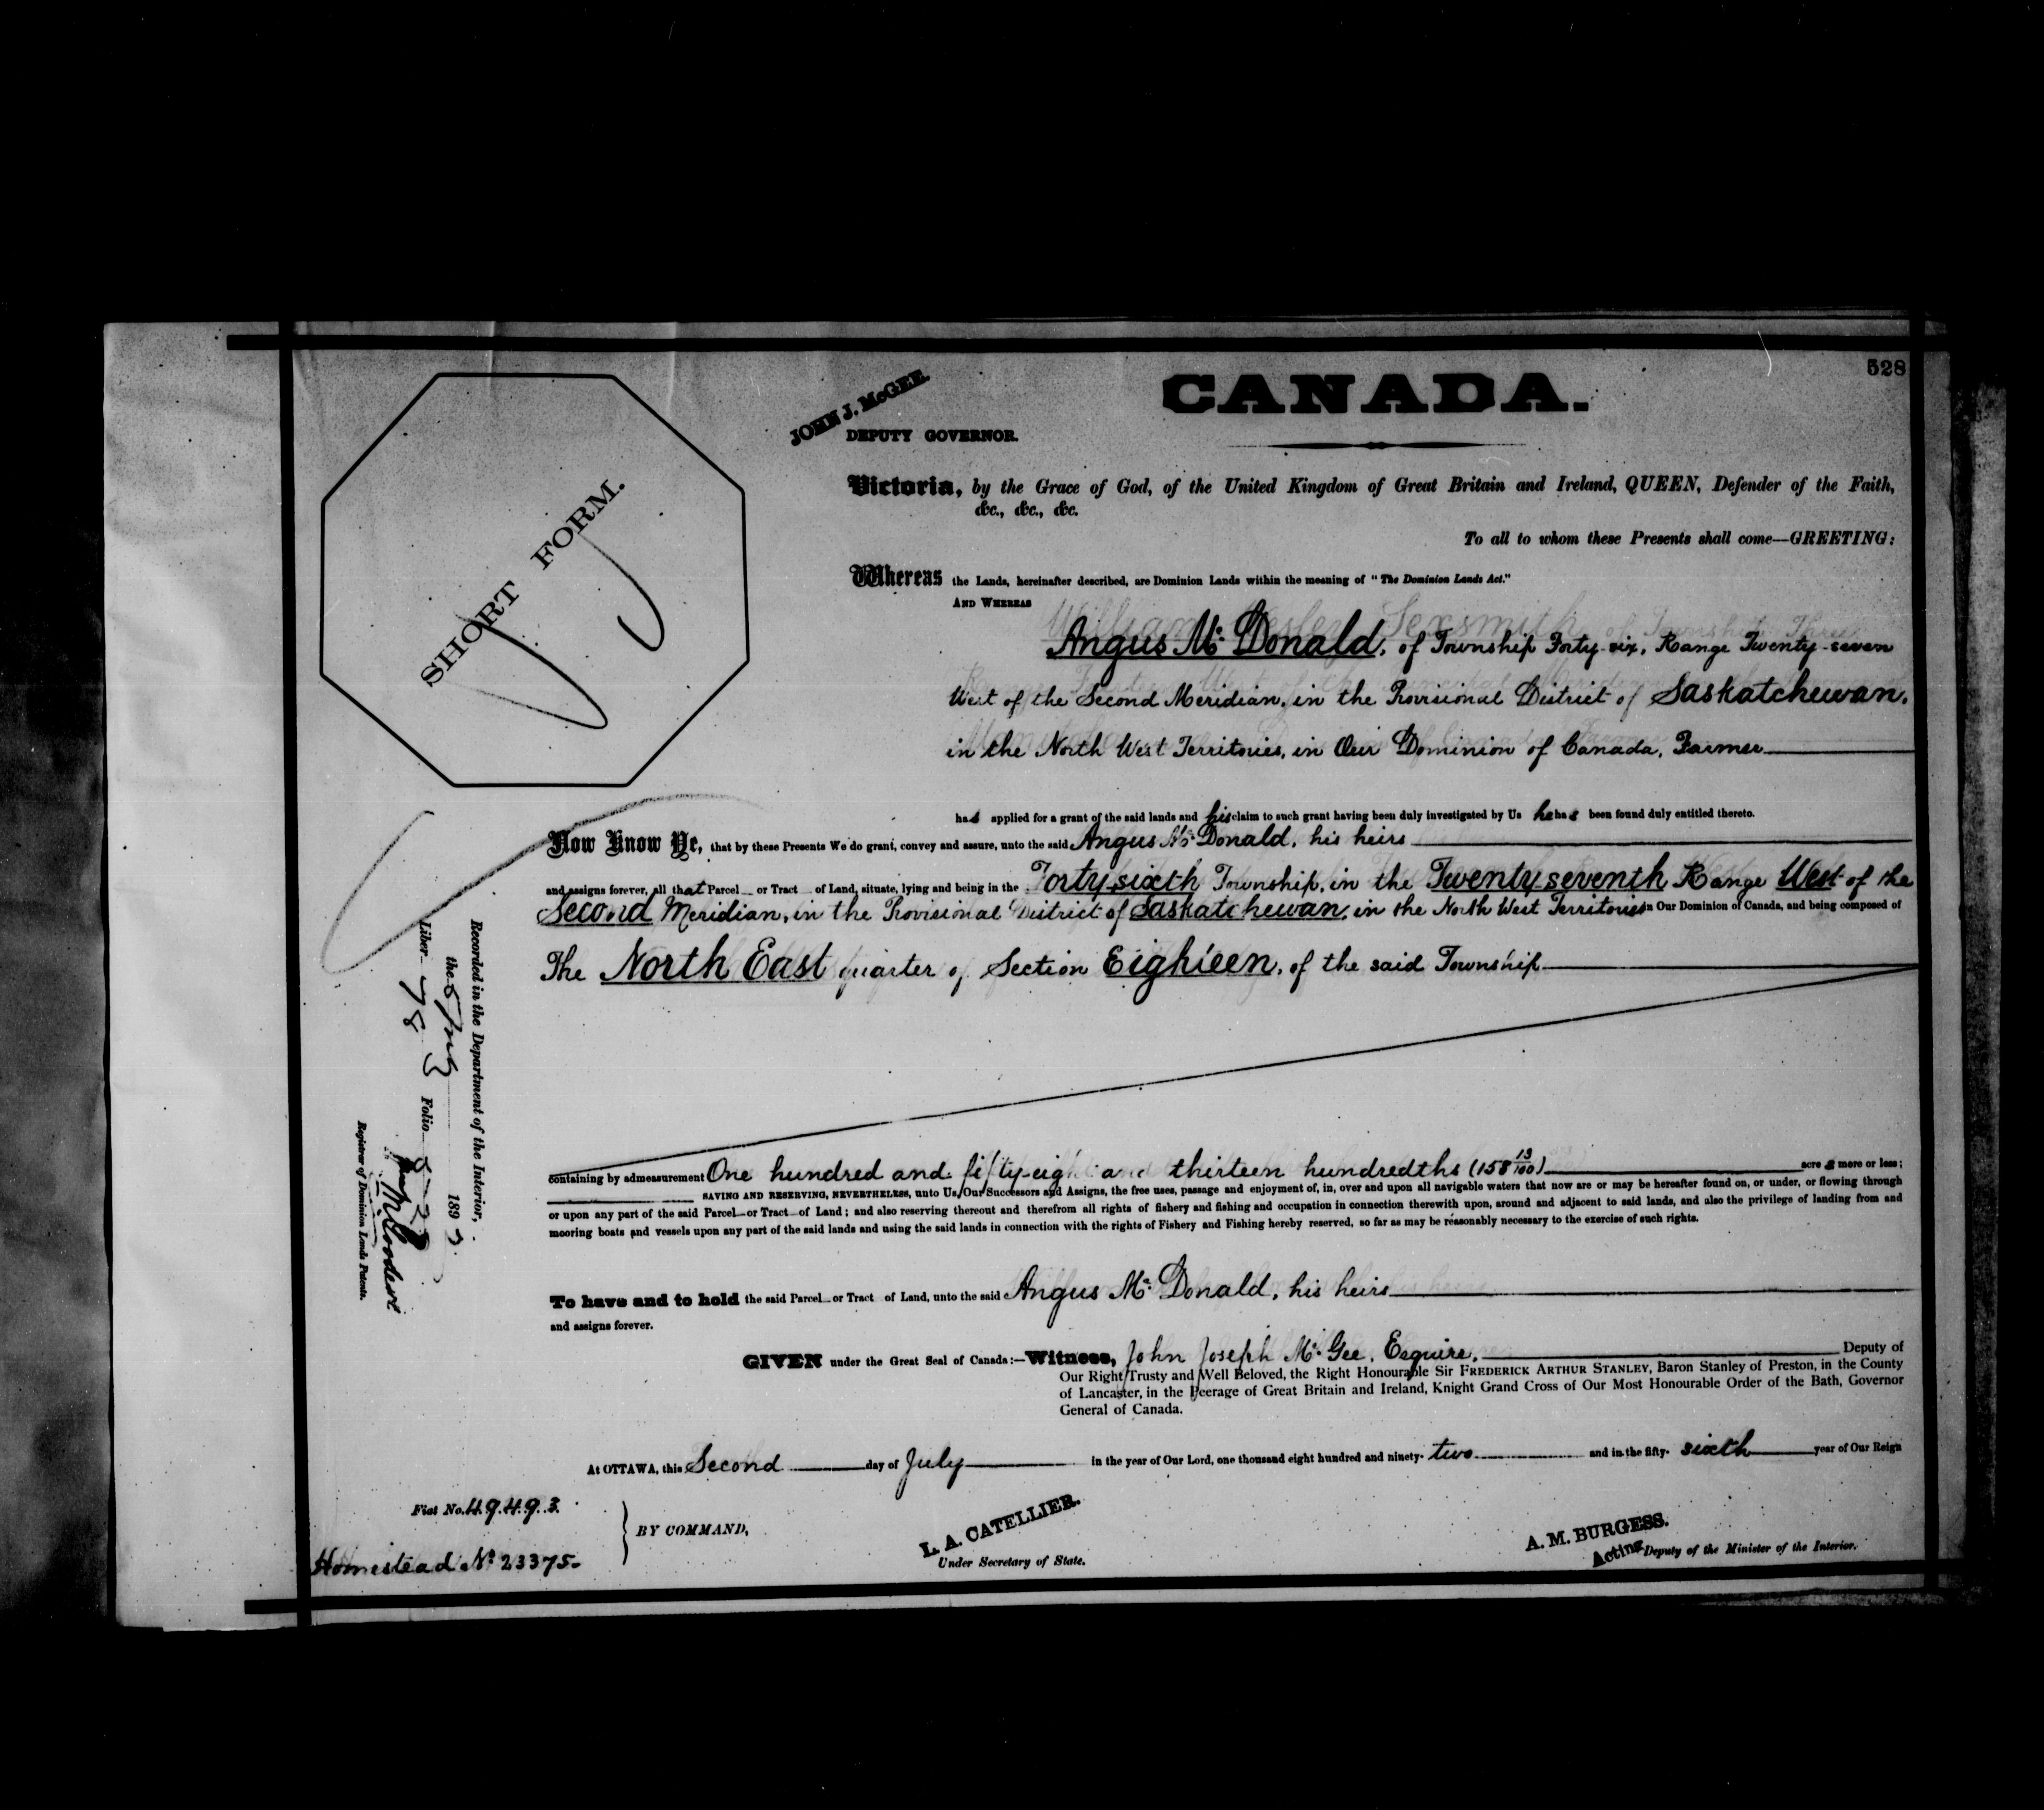 528
CANADA.
JOHN J. McGEE.
DEPUTY GOVERNOR.
SHORT FORM.
Victoria, by the Grace of God, of the United Kingdom of Great Britain and Ireland, QUEEN, Defender of the Faith,
&c., &c., &c.
To all to whom these Presents shall come—GREETING:
Whereas the Lands, hereinafter described, are Dominion Lands within the meaning of "The Dominion Lands Act."
AND WHEREAS
Angus Mc Donald, of Township Forty-six, Range Twenty-seven
West of the Second Meridian, in the Provisional District of Saskatchewan,
in the North West Territories, in Our Dominion of Canada, Farmer
has applied for a grant of the said lands and his claim to such grant having been duly investigated by Us he has been found duly entitled thereto.
Now Know Ye, that by these Presents We do grant, convey and assure, unto the said Angus Mc Donald, his heirs
and assigns forever, all that Parcel or Tract of Land, situate, lying and being in the Forty sixth Township, in the Twenty seventh Range West of the
Second Meridian, in the Provisional District of Saskatchewan, in the North West Territories in Our Dominion of Canada, and being composed of
The North East quarter of Section Eighteen, of the said Township
containing by admeasurement One hundred and fifty-eight and thirteen hundredths (158 13/100) acres more or less;
SAVING AND RESERVING, NEVERTHELESS, unto Us, Our Successors and Assigns, the free uses, passage and enjoyment of, in, over and upon all navigable waters that now are or may be hereafter found on, or under, or flowing through
or upon any part of the said Parcel or Tract of Land; and also reserving thereout and therefrom all rights of fishery and fishing and occupation in connection therewith upon, around and adjacent to said lands, and also the privilege of landing from and
mooring boats and vessels upon any part of the said lands and using the said lands in connection with the rights of Fishery and Fishing hereby reserved, so far as may be reasonably necessary to the exercise of such rights.
To have and to hold the said Parcel or Tract of Land, unto the said Angus Mc Donald, his heirs
and assigns forever.
GIVEN under the Great Seal of Canada:—Witness, John Joseph Mc Gee, Esquire, Deputy of
Our Right Trusty and Well Beloved, the Right Honourable Sir FREDERICK ARTHUR STANLEY, Baron Stanley of Preston, in the County
of Lancaster, in the Peerage of Great Britain and Ireland, Knight Grand Cross of Our Most Honourable Order of the Bath, Governor
General of Canada.
At OTTAWA, this Second day of July in the year of Our Lord, one thousand eight hundred and ninety-two and in the fifty-sixth year of Our Reign
Fiat No. 49493
Homestead No 23375
BY COMMAND,
L. A. CATELLIER.
Under Secretary of State.
A. M. BURGESS.
Acting Deputy of the Minister of the Interior.
Recorded in the Department of the Interior,
the 189
Liber 78 Folio
Registrar of Dominion Lands Patents.